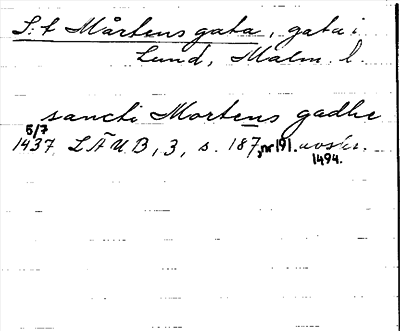 S:t Mårtensgata, gata i
Lund, Malm. l.
sancti Mortens gadhe
5/7
1437 LÄUB, 3, s. 187, nr 191. avskr.
1494.